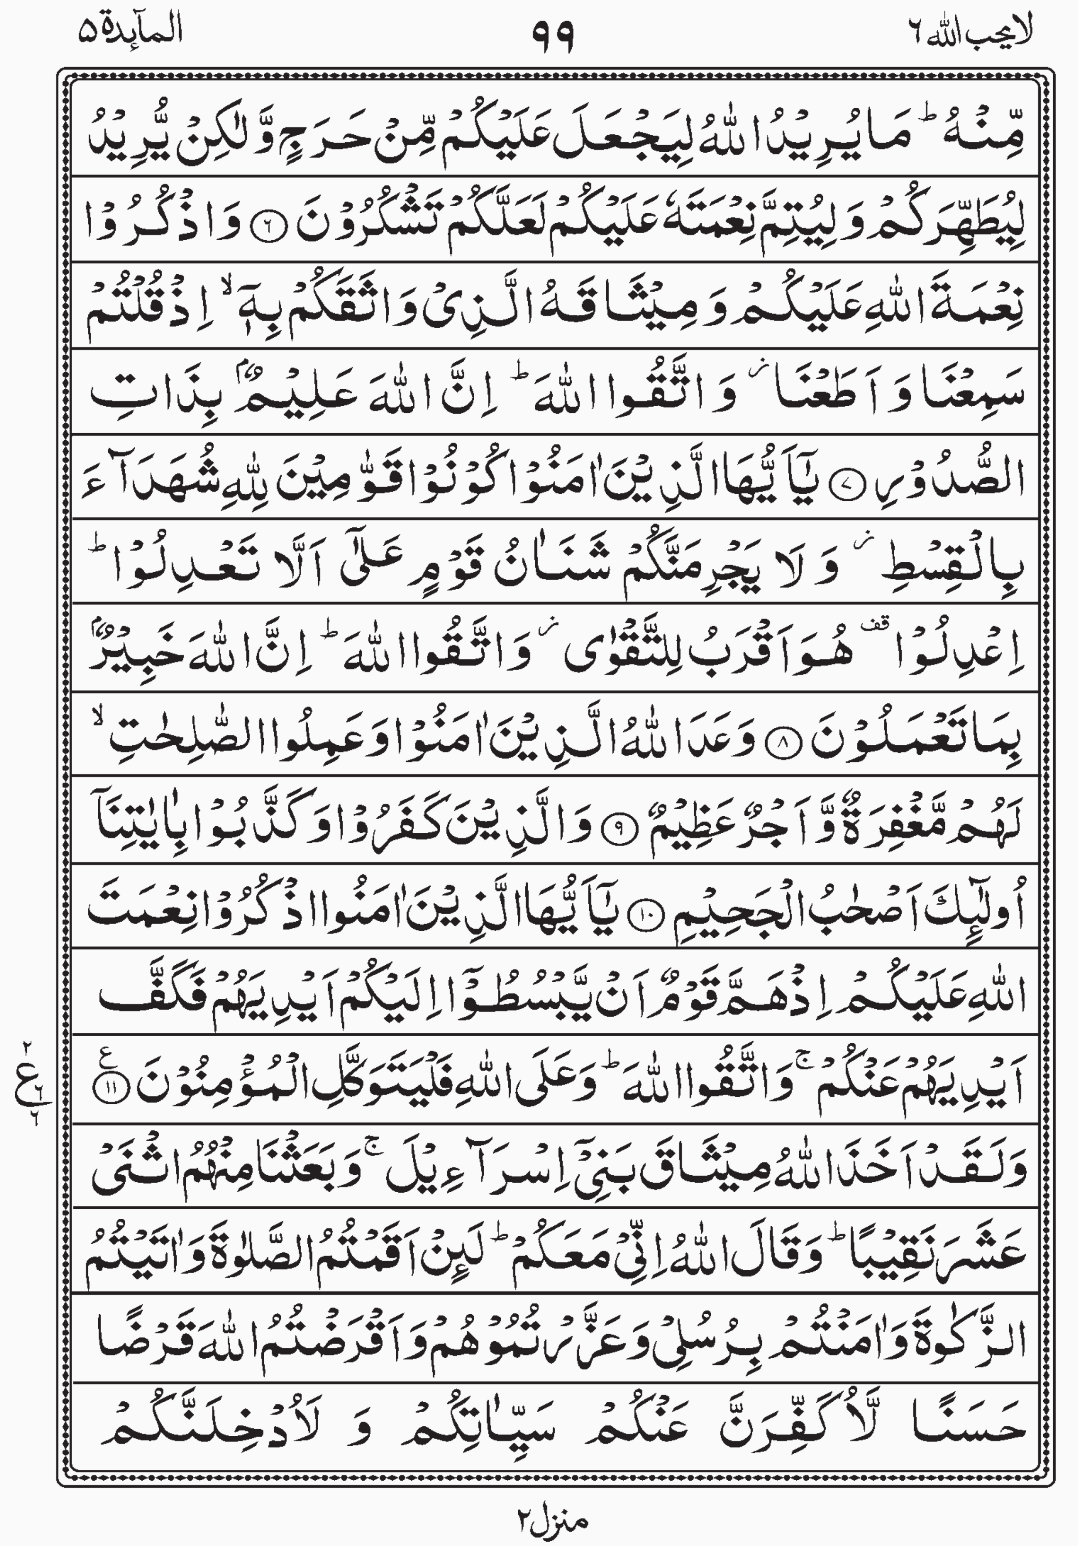 لا یحب اللہ ۶ ۹۹ المآىِٕدۃ ۵
مِّنْهُ ؕ مَا یُرِیْدُ اللّٰهُ لِیَجْعَلَ عَلَیْكُمْ مِّنْ حَرَجٍ وَّ لٰكِنْ یُّرِیْدُ
لِیُطَهِّرَكُمْ وَ لِیُتِمَّ نِعْمَتَهٗ عَلَیْكُمْ لَعَلَّكُمْ تَشْكُرُوْنَ ۝۶ وَ اذْكُرُوْا
نِعْمَةَ اللّٰهِ عَلَیْكُمْ وَ مِیْثَاقَهُ الَّذِیْ وَاثَقَكُمْ بِهٖۤ ۙ اِذْ قُلْتُمْ
سَمِعْنَا وَ اَطَعْنَا ؗ وَ اتَّقُوا اللّٰهَ ؕ اِنَّ اللّٰهَ عَلِیْمٌۢ بِذَاتِ
الصُّدُوْرِ ۝۷ یٰۤاَیُّهَا الَّذِیْنَ اٰمَنُوْا كُوْنُوْا قَوّٰمِیْنَ لِلّٰهِ شُهَدَآءَ
بِالْقِسْطِ ؗ وَ لَا یَجْرِمَنَّكُمْ شَنَاٰنُ قَوْمٍ عَلٰۤی اَلَّا تَعْدِلُوْا ؕ
اِعْدِلُوْا ۫ هُوَ اَقْرَبُ لِلتَّقْوٰی ؗ وَ اتَّقُوا اللّٰهَ ؕ اِنَّ اللّٰهَ خَبِیْرٌۢ
بِمَا تَعْمَلُوْنَ ۝۸ وَعَدَ اللّٰهُ الَّذِیْنَ اٰمَنُوْا وَ عَمِلُوا الصّٰلِحٰتِ ۙ
لَهُمْ مَّغْفِرَةٌ وَّ اَجْرٌ عَظِیْمٌ ۝۹ وَ الَّذِیْنَ كَفَرُوْا وَ كَذَّبُوْا بِاٰیٰتِنَاۤ
اُولٰٓىِٕكَ اَصْحٰبُ الْجَحِیْمِ ۝۱۰ یٰۤاَیُّهَا الَّذِیْنَ اٰمَنُوا اذْكُرُوْا نِعْمَتَ
اللّٰهِ عَلَیْكُمْ اِذْ هَمَّ قَوْمٌ اَنْ یَّبْسُطُوْۤا اِلَیْكُمْ اَیْدِیَهُمْ فَكَفَّ
اَیْدِیَهُمْ عَنْكُمْ ۚ وَ اتَّقُوا اللّٰهَ ؕ وَ عَلَی اللّٰهِ فَلْیَتَوَكَّلِ الْمُؤْمِنُوْنَ ۝۱۱ ع ۲ ع ۶ ۶
وَ لَقَدْ اَخَذَ اللّٰهُ مِیْثَاقَ بَنِیْۤ اِسْرَآءِیْلَ ۚ وَ بَعَثْنَا مِنْهُمُ اثْنَیْ
عَشَرَ نَقِیْبًا ؕ وَ قَالَ اللّٰهُ اِنِّیْ مَعَكُمْ ؕ لَىِٕنْ اَقَمْتُمُ الصَّلٰوةَ وَ اٰتَیْتُمُ
الزَّكٰوةَ وَ اٰمَنْتُمْ بِرُسُلِیْ وَ عَزَّرْتُمُوْهُمْ وَ اَقْرَضْتُمُ اللّٰهَ قَرْضًا
حَسَنًا لَّاُكَفِّرَنَّ عَنْكُمْ سَیِّاٰتِكُمْ وَ لَاُدْخِلَنَّكُمْ
منزل ۲